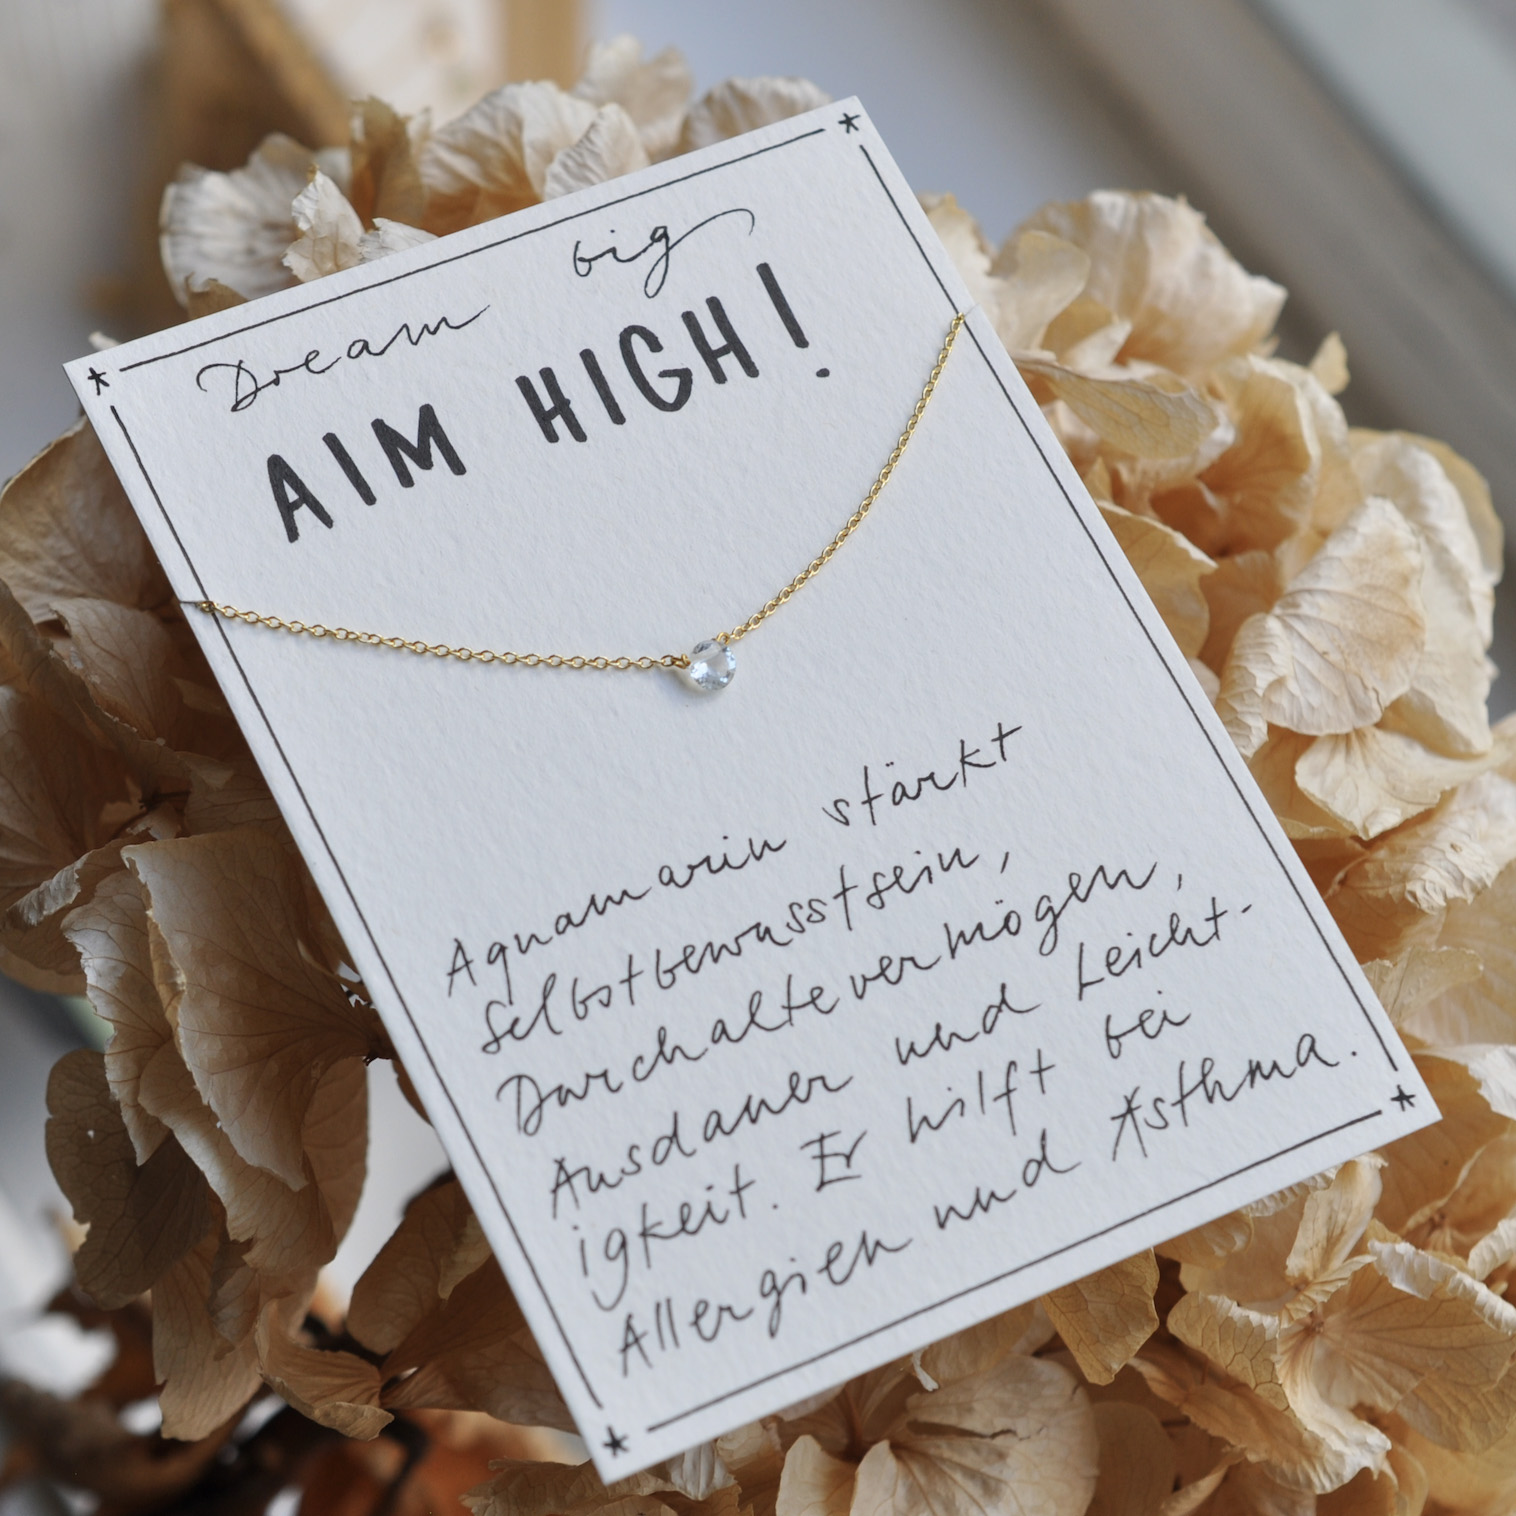 Dream big
AIM HIGH!
Aquamarin stärkt
Selbstbewusstsein,
Durchaltevermögen,
Ausdauer und Leicht-
igkeit. Er hilft bei
Allergien und Asthma.